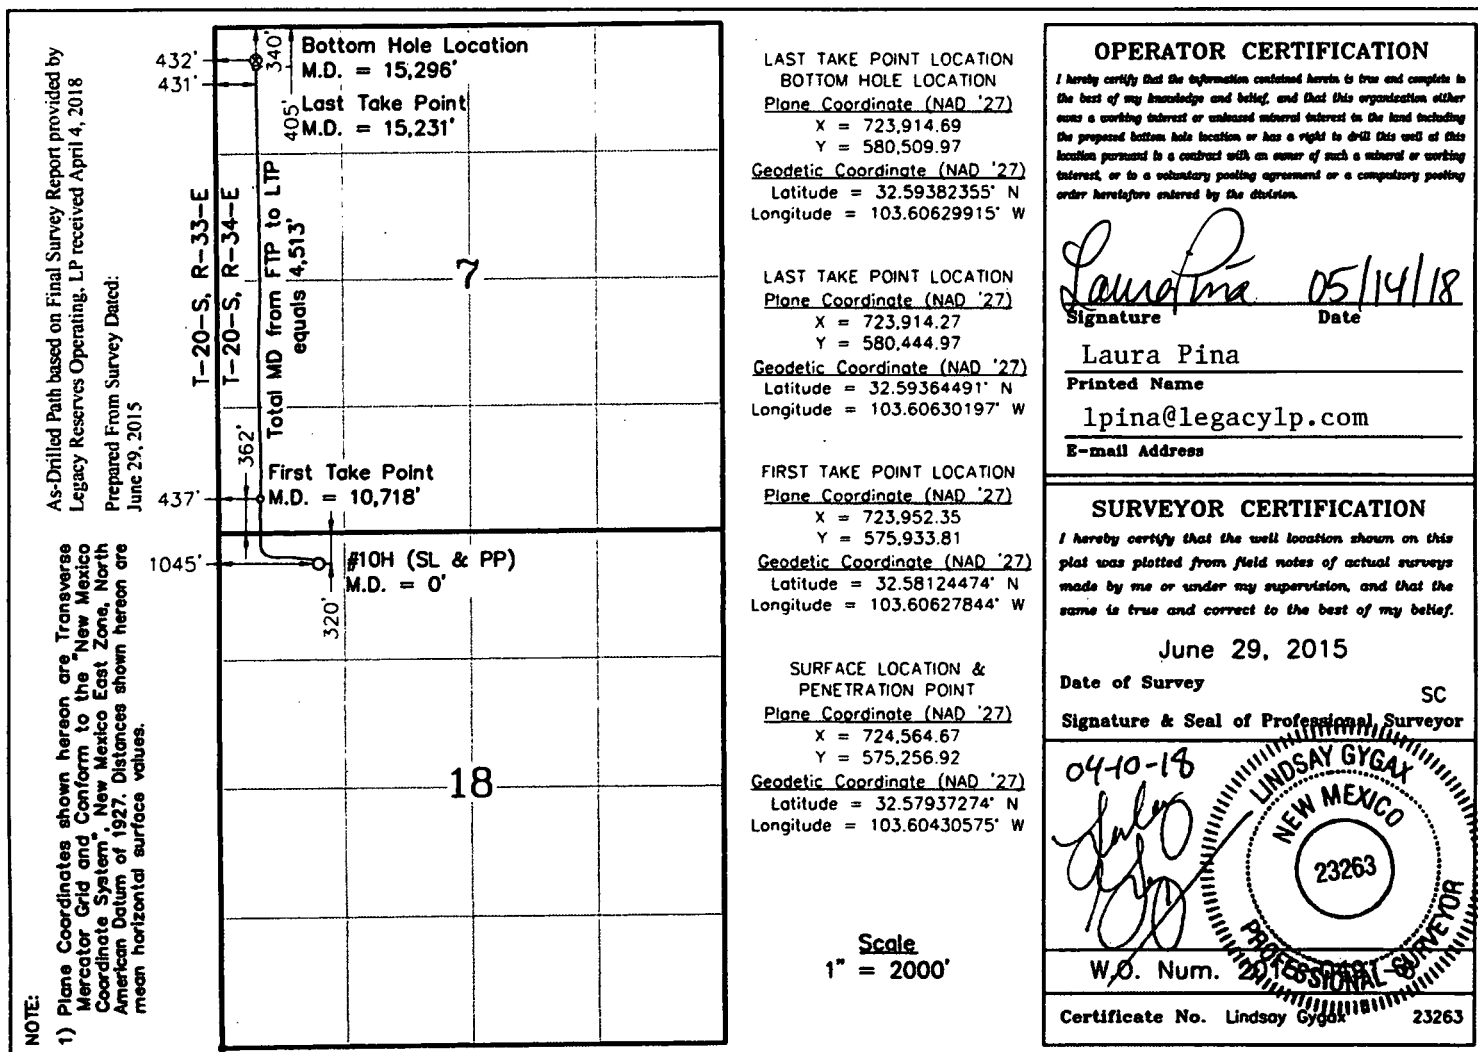 As-Drilled Path based on Final Survey Report provided by
Legacy Reserves Operating, LP received April 4, 2018
Prepared From Survey Dated:
June 29, 2015
NOTE:
1) Plane Coordinates shown hereon are Transverse
Mercator Grid and Conform to the "New Mexico
Coordinate System", New Mexico East Zone, North
American Datum of 1927. Distances shown hereon are
mean horizontal surface values.
432'
431'
340'
405'
Bottom Hole Location
M.D. = 15,296'
Last Take Point
M.D. = 15,231'
T-20-S, R-33-E
T-20-S, R-34-E
Total MD from FTP to LTP
equals 4,513'
7
362'
437'
First Take Point
M.D. = 10,718'
1045'
#10H (SL & PP)
M.D. = 0'
320'
18
LAST TAKE POINT LOCATION
BOTTOM HOLE LOCATION
Plane Coordinate (NAD '27)
X = 723,914.69
Y = 580,509.97
Geodetic Coordinate (NAD '27)
Latitude = 32.59382355° N
Longitude = 103.60629915° W
LAST TAKE POINT LOCATION
Plane Coordinate (NAD '27)
X = 723,914.27
Y = 580,444.97
Geodetic Coordinate (NAD '27)
Latitude = 32.59364491° N
Longitude = 103.60630197° W
FIRST TAKE POINT LOCATION
Plane Coordinate (NAD '27)
X = 723,952.35
Y = 575,933.81
Geodetic Coordinate (NAD '27)
Latitude = 32.58124474° N
Longitude = 103.60627844° W
SURFACE LOCATION &
PENETRATION POINT
Plane Coordinate (NAD '27)
X = 724,564.67
Y = 575,256.92
Geodetic Coordinate (NAD '27)
Latitude = 32.57937274° N
Longitude = 103.60430575° W
Scale
1" = 2000'
OPERATOR CERTIFICATION
I hereby certify that the information contained herein is true and complete to
the best of my knowledge and belief, and that this organization either
owns a working interest or unleased mineral interest in the land including
the proposed bottom hole location or has a right to drill this well at this
location pursuant to a contract with an owner of such a mineral or working
interest, or to a voluntary pooling agreement or a compulsory pooling
order heretofore entered by the division.
Laura Pina 05/14/18
Signature Date
Laura Pina
Printed Name
lpina@legacylp.com
E-mail Address
SURVEYOR CERTIFICATION
I hereby certify that the well location shown on this
plat was plotted from field notes of actual surveys
made by me or under my supervision, and that the
same is true and correct to the best of my belief.
June 29, 2015
Date of Survey
SC
Signature & Seal of Professional Surveyor
04-10-18
LINDSAY GYGAX
NEW MEXICO
23263
PROFESSIONAL SURVEYOR
W.O. Num.
Certificate No. Lindsay Gygax 23263